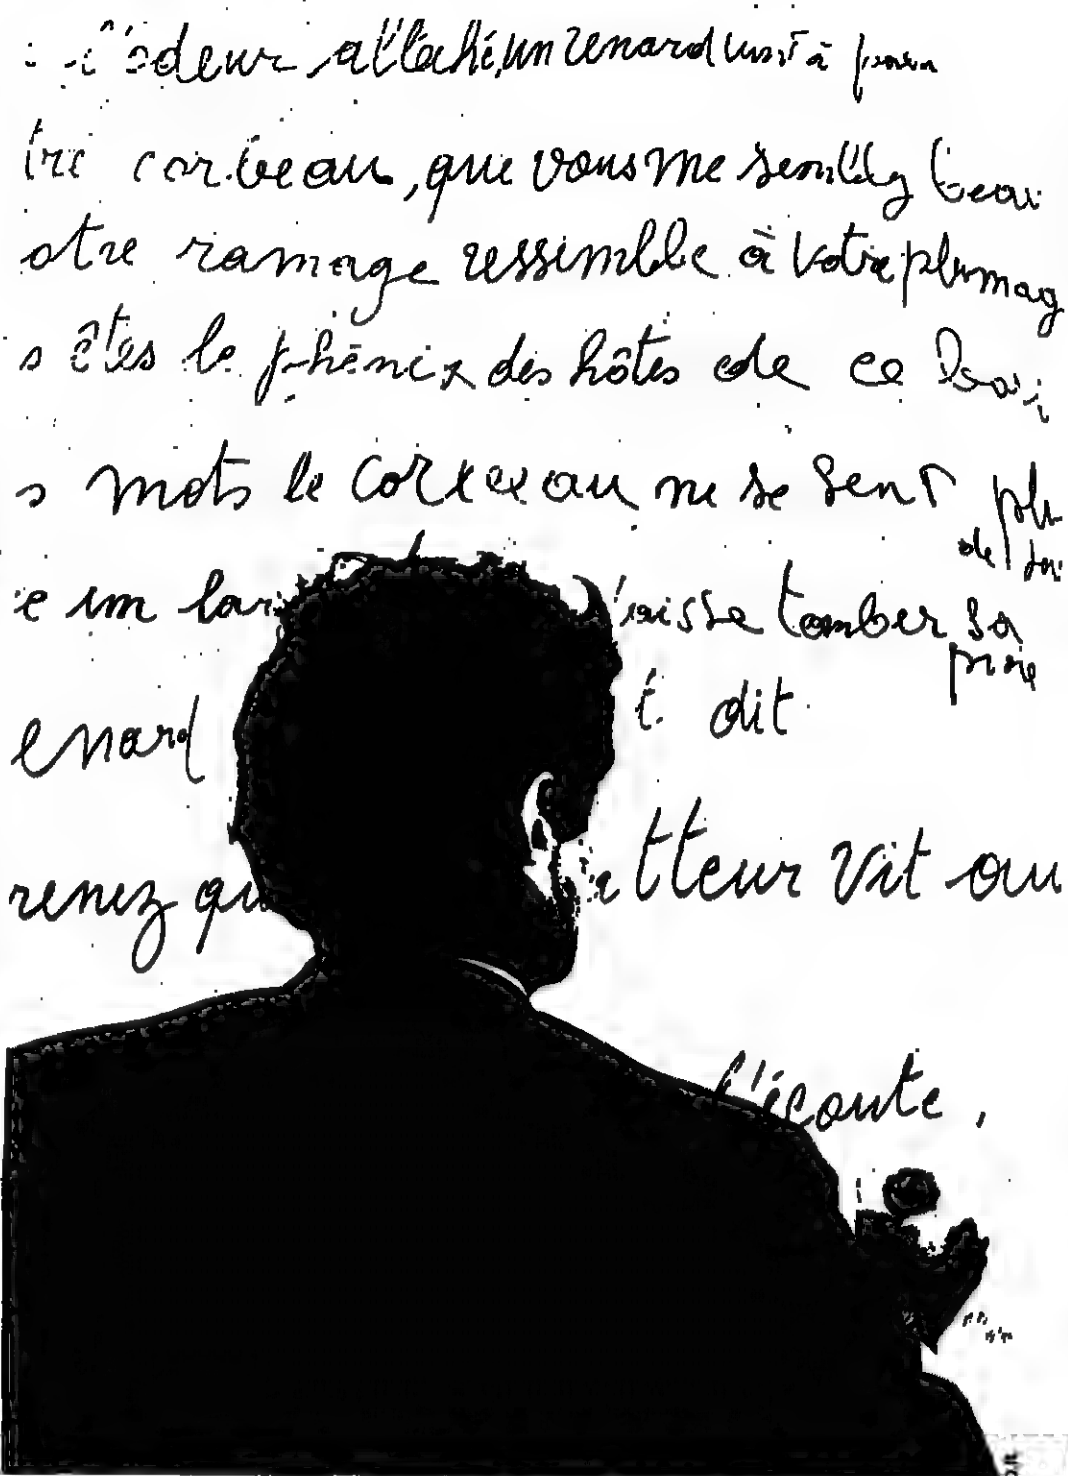 l'odeur alléché, un renard vint à
tre corbeau, que vous me semblez beau
otre ramage ressemble à votre plumag
s êtes le phénix des hôtes de ce boi
s mots le corbeau ne se sent plu
de
e un lar laisse tomber sa
proie
enard t dit
renez qu atteur vit au
l'écoute,